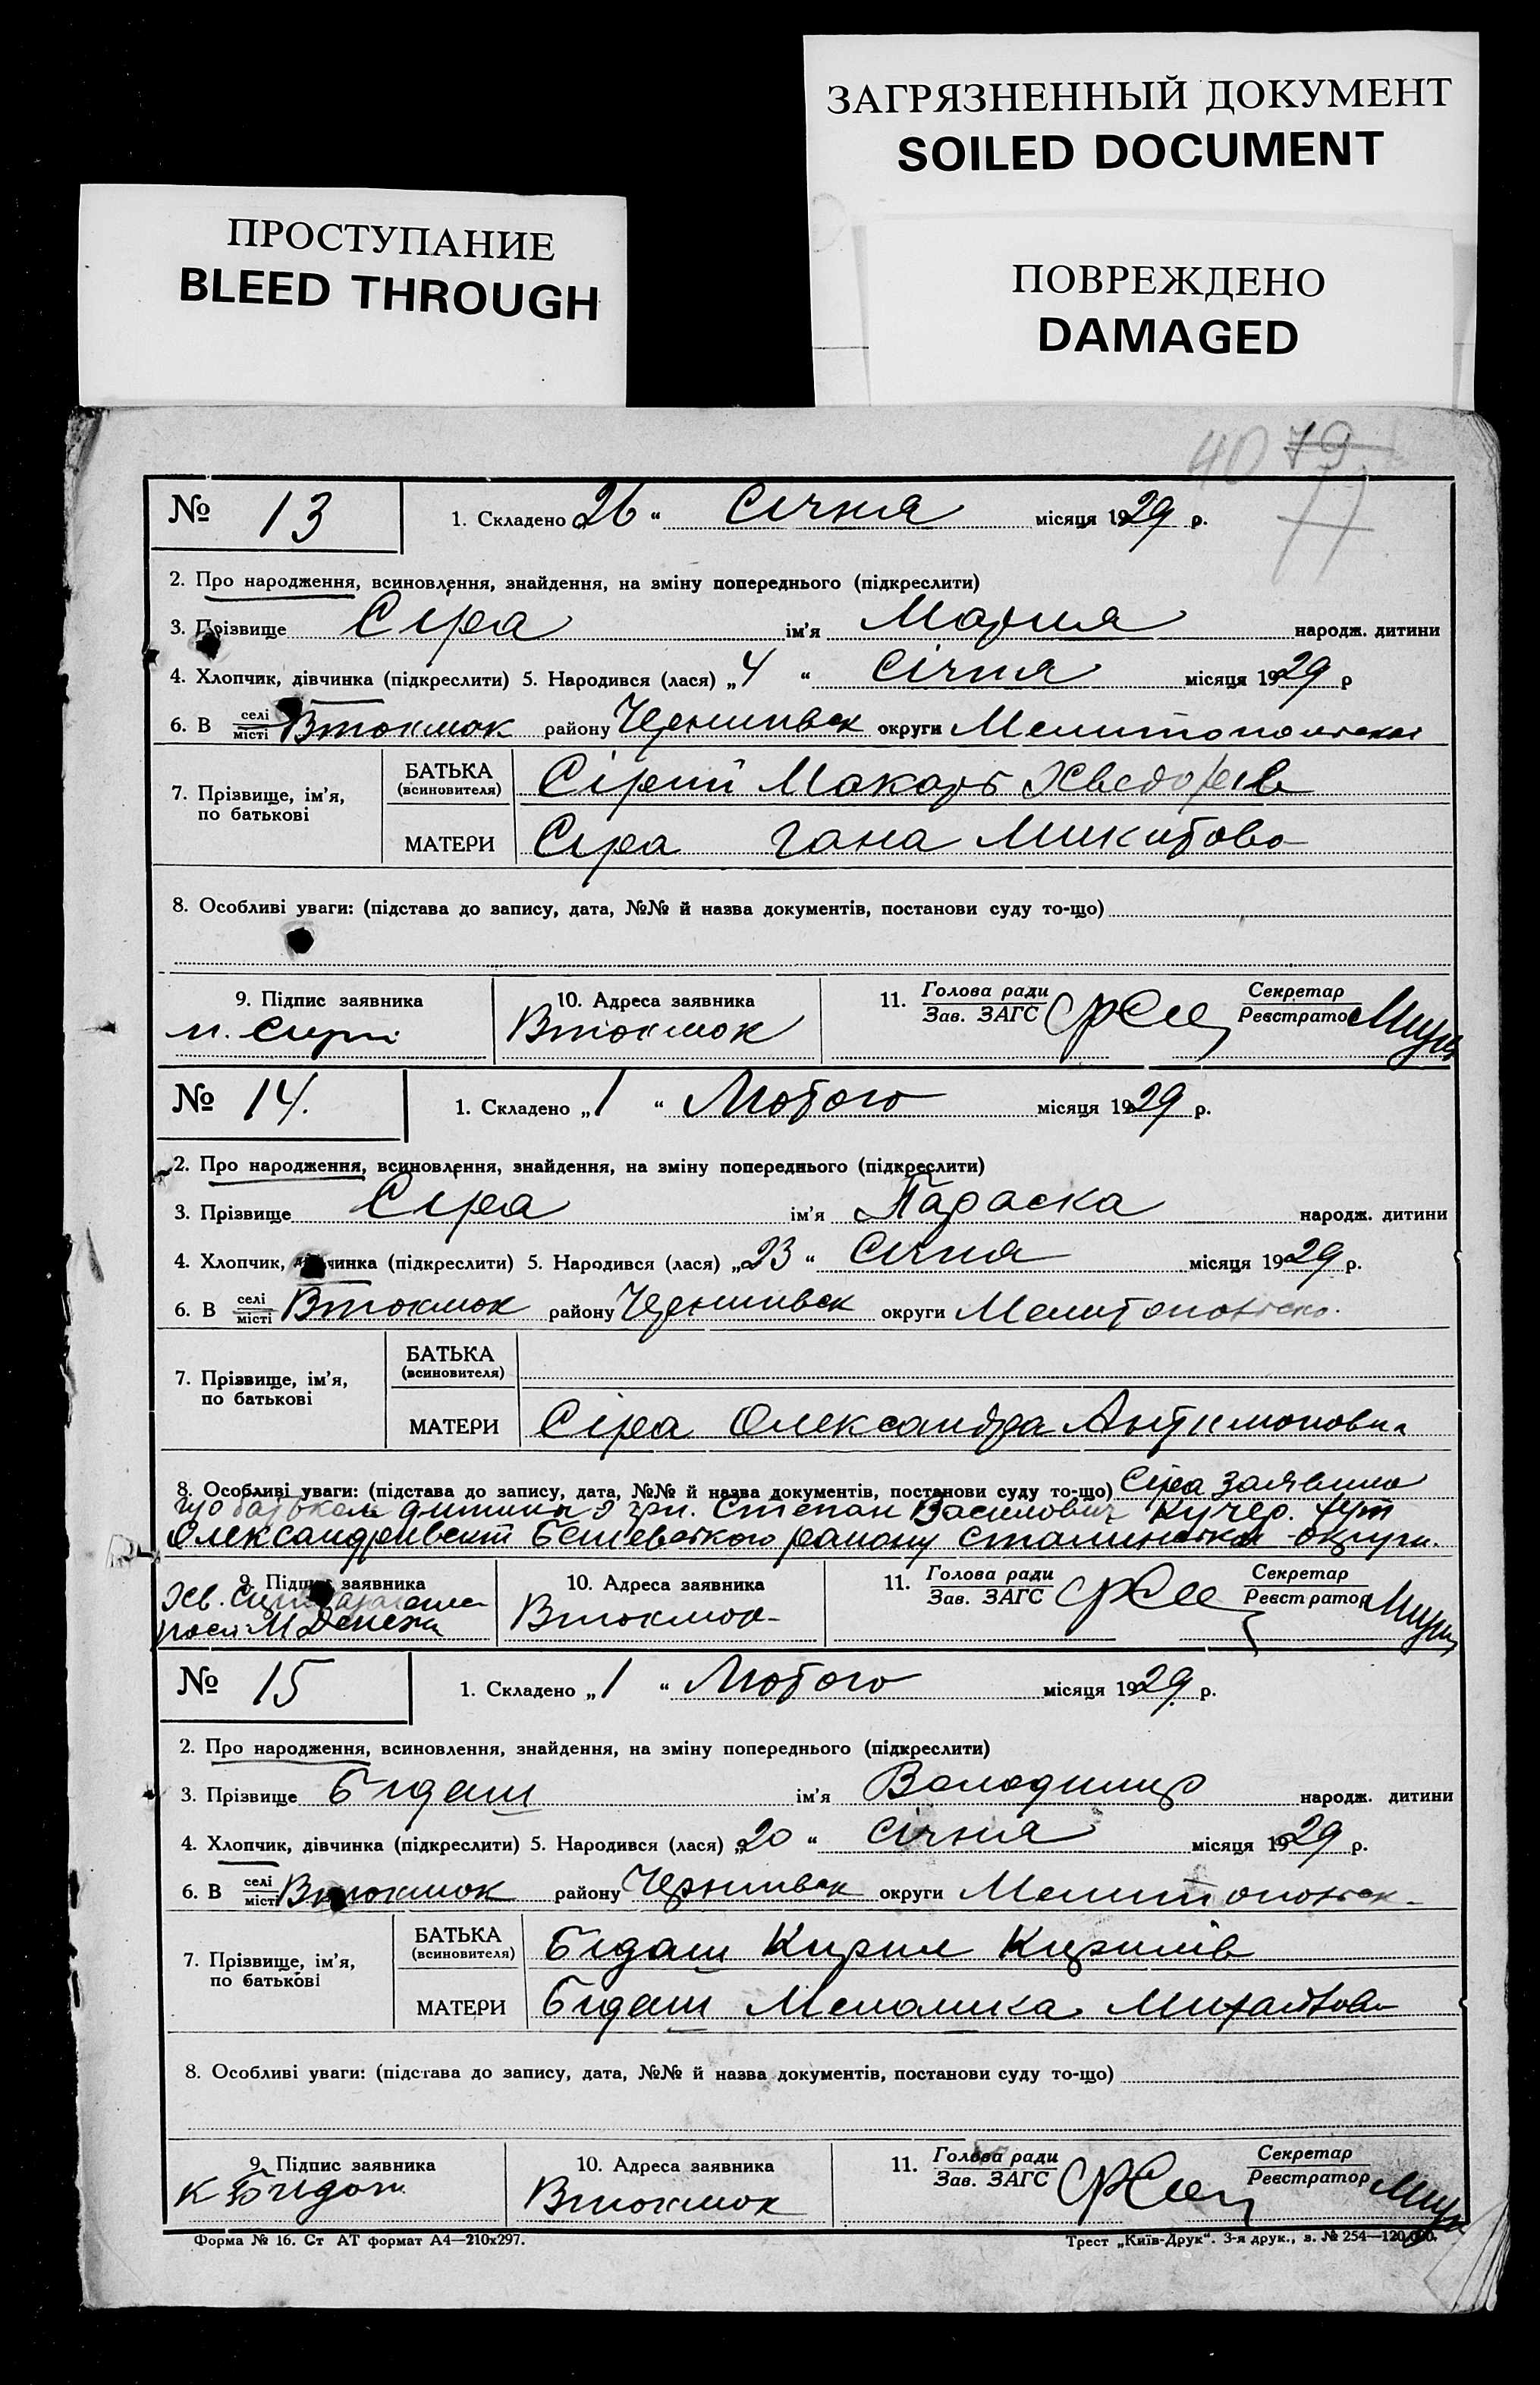 ЗАГРЯЗНЕННЫЙ ДОКУМЕНТ
SOILED DOCUMENT
ПРОСТУПАНИЕ
BLEED THROUGH
ПОВРЕЖДЕНО
DAMAGED
40 79
77
№ 13 1. Складено „26“ Січня місяця 1929 р.
2. Про народження, всиновлення, знайдення, на зміну попереднього (підкреслити)
3. Прізвище Сіра ім'я Мария народж. дитини
4. Хлопчик, дівчинка (підкреслити) 5. Народився (лася) „4“ Січня місяця 1929 р
6. В селі місті Втокмок району Чернигівск округи Мелитопольскої
7. Прізвище, ім'я, по батькові
БАТЬКА (всиновителя) Сірий Макарь Хведорів
МАТЕРИ Сіра Гана Микитова
8. Особливі уваги: (підстава до запису, дата, №№ й назва документів, постанови суду то-що)
9. Підпис заявника 10. Адреса заявника 11. Голова ради Зав. ЗАГС Секретар Реєстратор
М. Сирі Втокмок
№ 14. 1. Складено „1“ Лютого місяця 1929 р.
2. Про народження, всиновлення, знайдення, на зміну попереднього (підкреслити)
3. Прізвище Сіра ім'я Параска народж. дитини
4. Хлопчик, дівчинка (підкреслити) 5. Народився (лася) „23“ Січня місяця 1929 р.
6. В селі місті Втокмок району Чернигівск округи Мелитопольско.
7. Прізвище, ім'я, по батькові
БАТЬКА (всиновителя)
МАТЕРИ Сіра Олександра Антимоновна
8. Особливі уваги: (підстава до запису, дата, №№ й назва документів, постанови суду то-що) Сіра заявила
що батьком дитини є гр. Степан Василович Кучер. хут
Олександрівский Бешевского району Сталинской округи.
9. Підпис заявника 10. Адреса заявника 11. Голова ради Зав. ЗАГС Секретар Реєстратор
Хв. Втокмок
№ 15 1. Складено „1“ Лютого місяця 1929 р.
2. Про народження, всиновлення, знайдення, на зміну попереднього (підкреслити)
3. Прізвище Бідаш ім'я Володимир народж. дитини
4. Хлопчик, дівчинка (підкреслити) 5. Народився (лася) „20“ Січня місяця 1929 р.
6. В селі місті Втокмок району Чернигівск округи Мелитопольск
7. Прізвище, ім'я, по батькові
БАТЬКА (всиновителя) Бідаш Кирил Кирилів
МАТЕРИ Бідаш Меланика Михайлова
8. Особливі уваги: (підстава до запису, дата, №№ й назва документів, постанови суду то-що)
9. Підпис заявника 10. Адреса заявника 11. Голова ради Зав. ЗАГС Секретар Реєстратор
К Бидаш Втокмок
Форма № 16. Ст АТ формат А4—210х297. Трест „Київ-Друк“. 3-я друк., з. № 254—120.000.